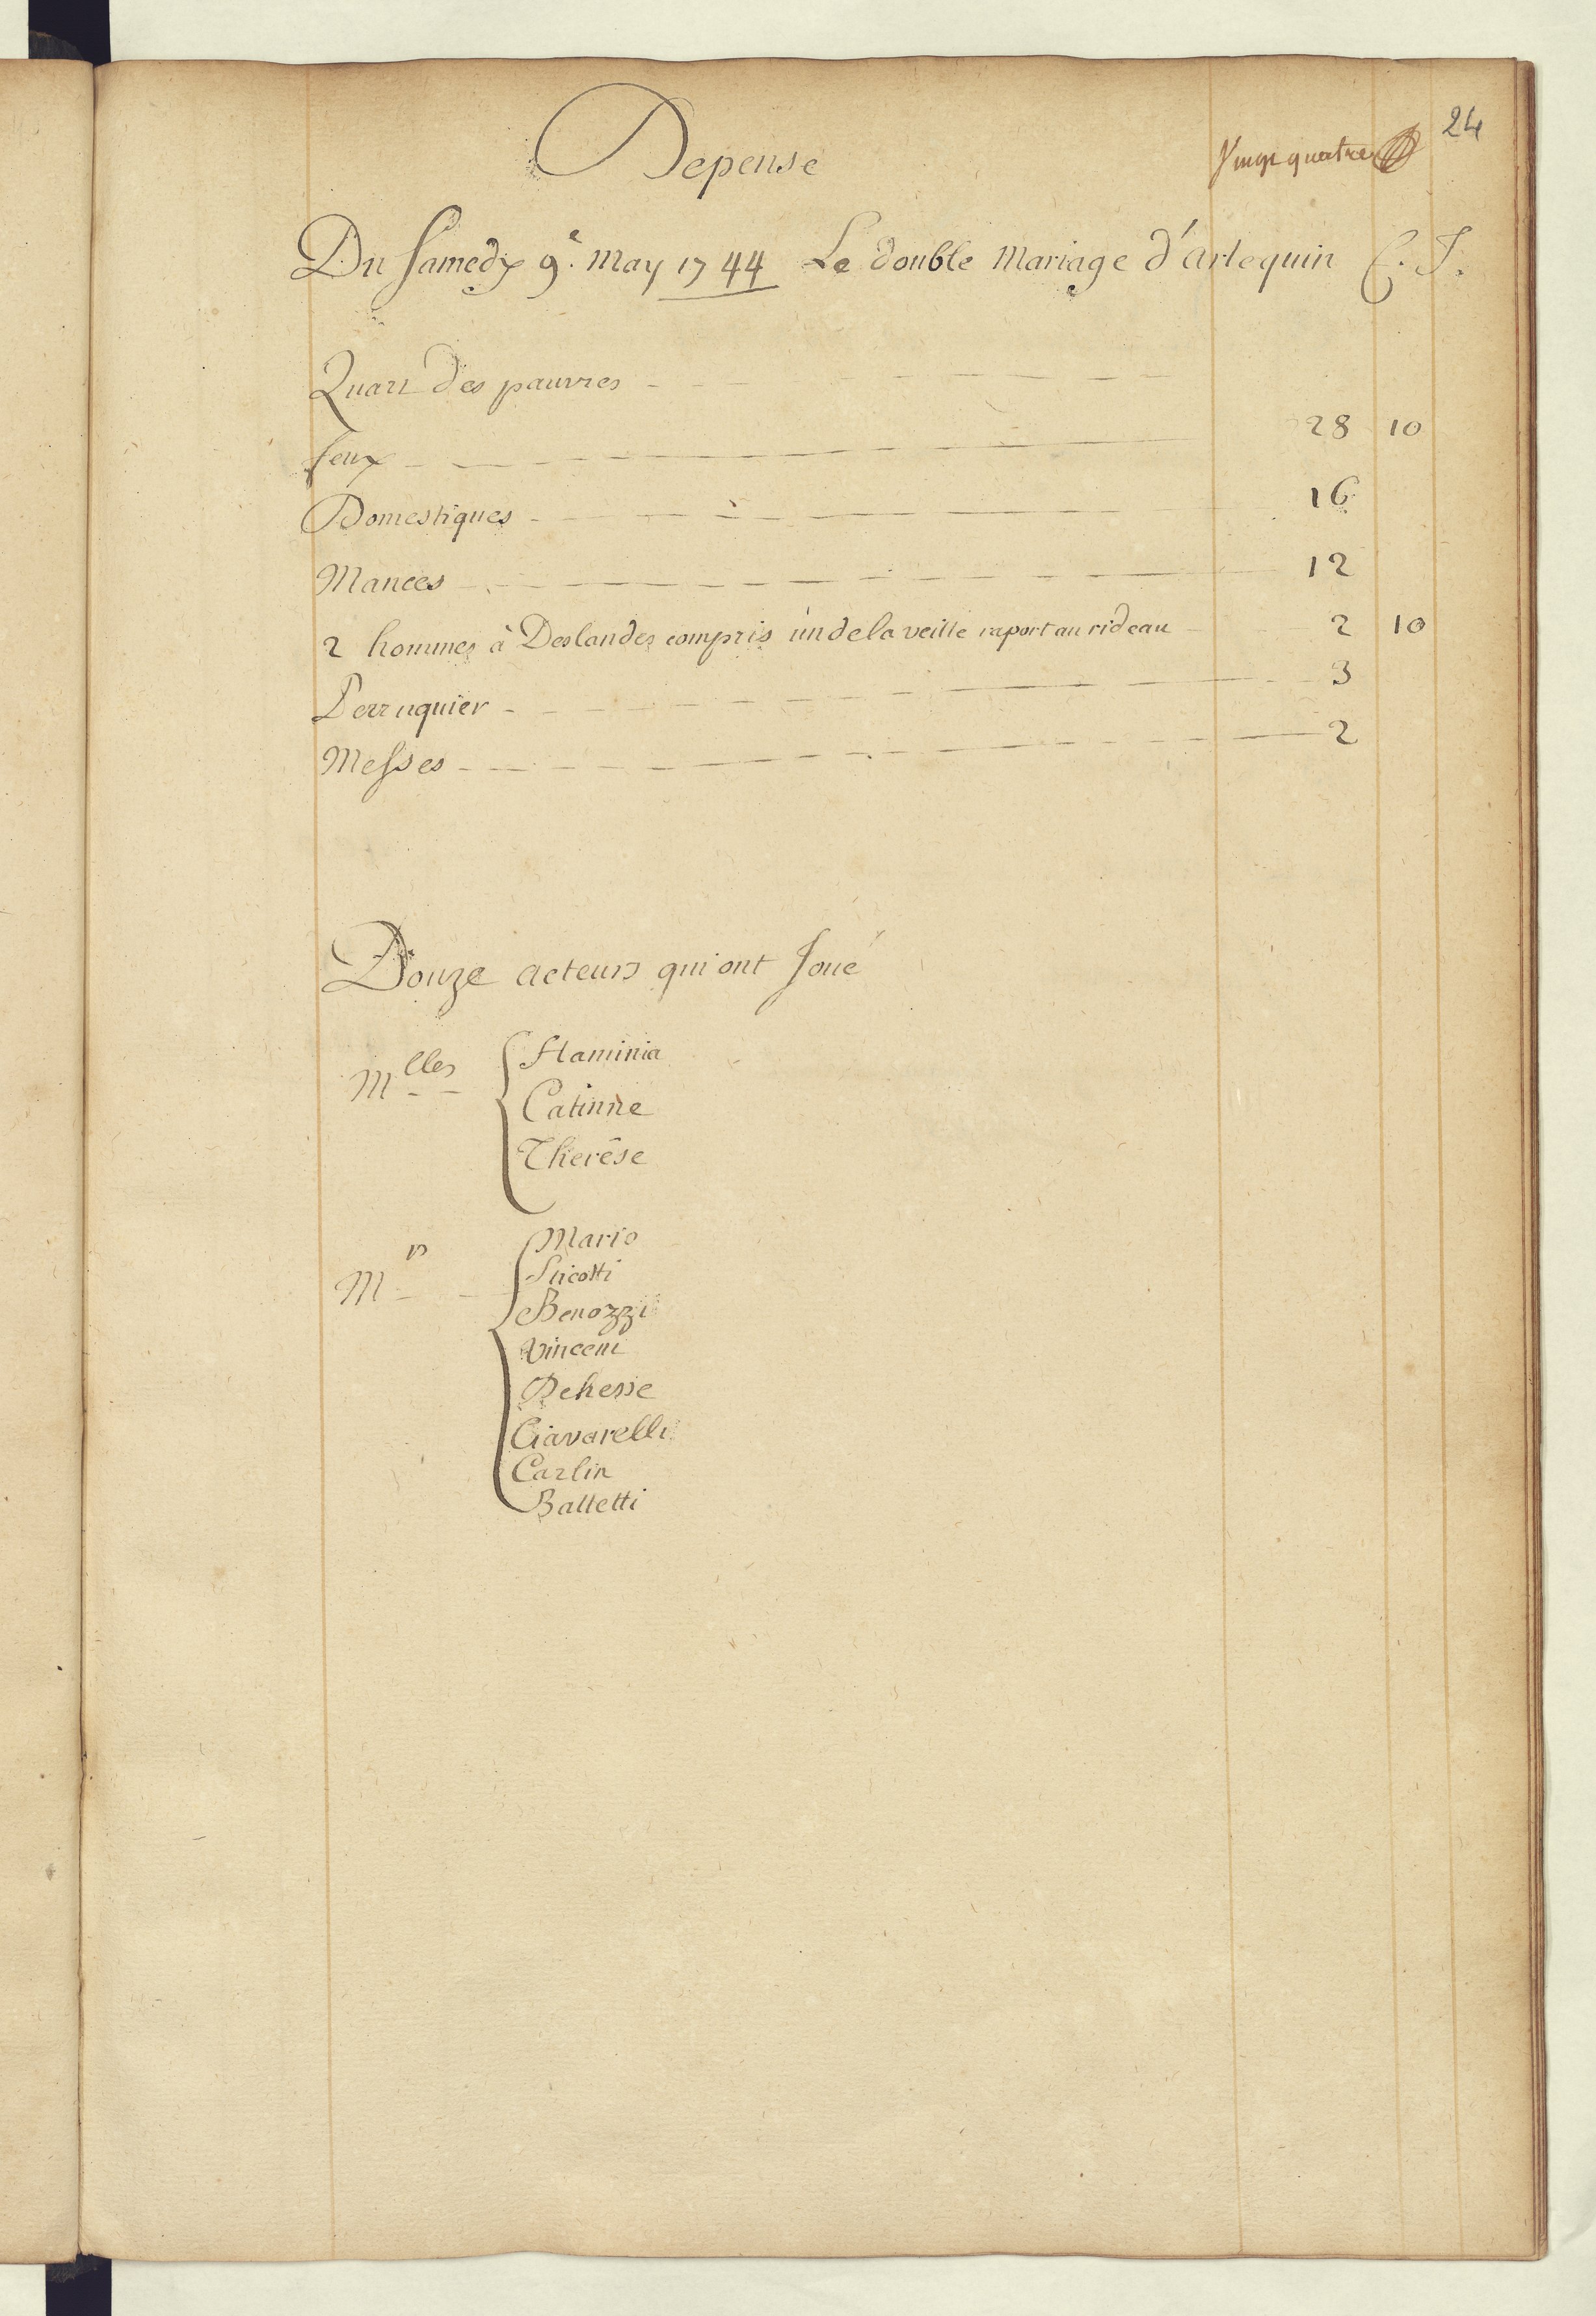 24
Vingt quatre
Depense
Du Samedy 9e. May 1744 Le double Mariage d'Arlequin C. I.
Quart des pauvres
feux 28 10
Domestiques 16
Mances 12
2 hommes à Deslandes compris un de la veille raport au rideau 2 10
Perruquier 3
Messes 2
Douze acteurs qui ont Joué
Mlles
Flaminia
Catinne
Therése
Mrs
Mario
Sticotti
Benozzi
Vincent
Dehesse
Ciavarelli
Carlin
Balletti